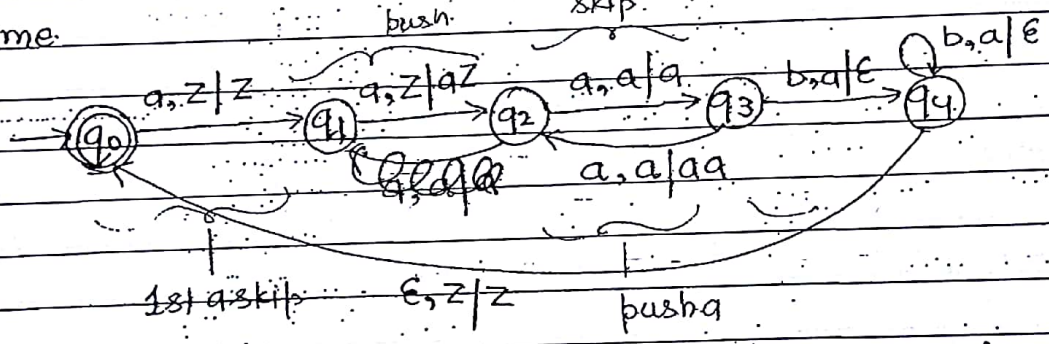 me.
push. skip.
a, z|z a, z|az a, a|a b, a|ε b, a|ε
q0 q1 q2 q3 q4
a, a|aa
1st a skip ε, z|z push a